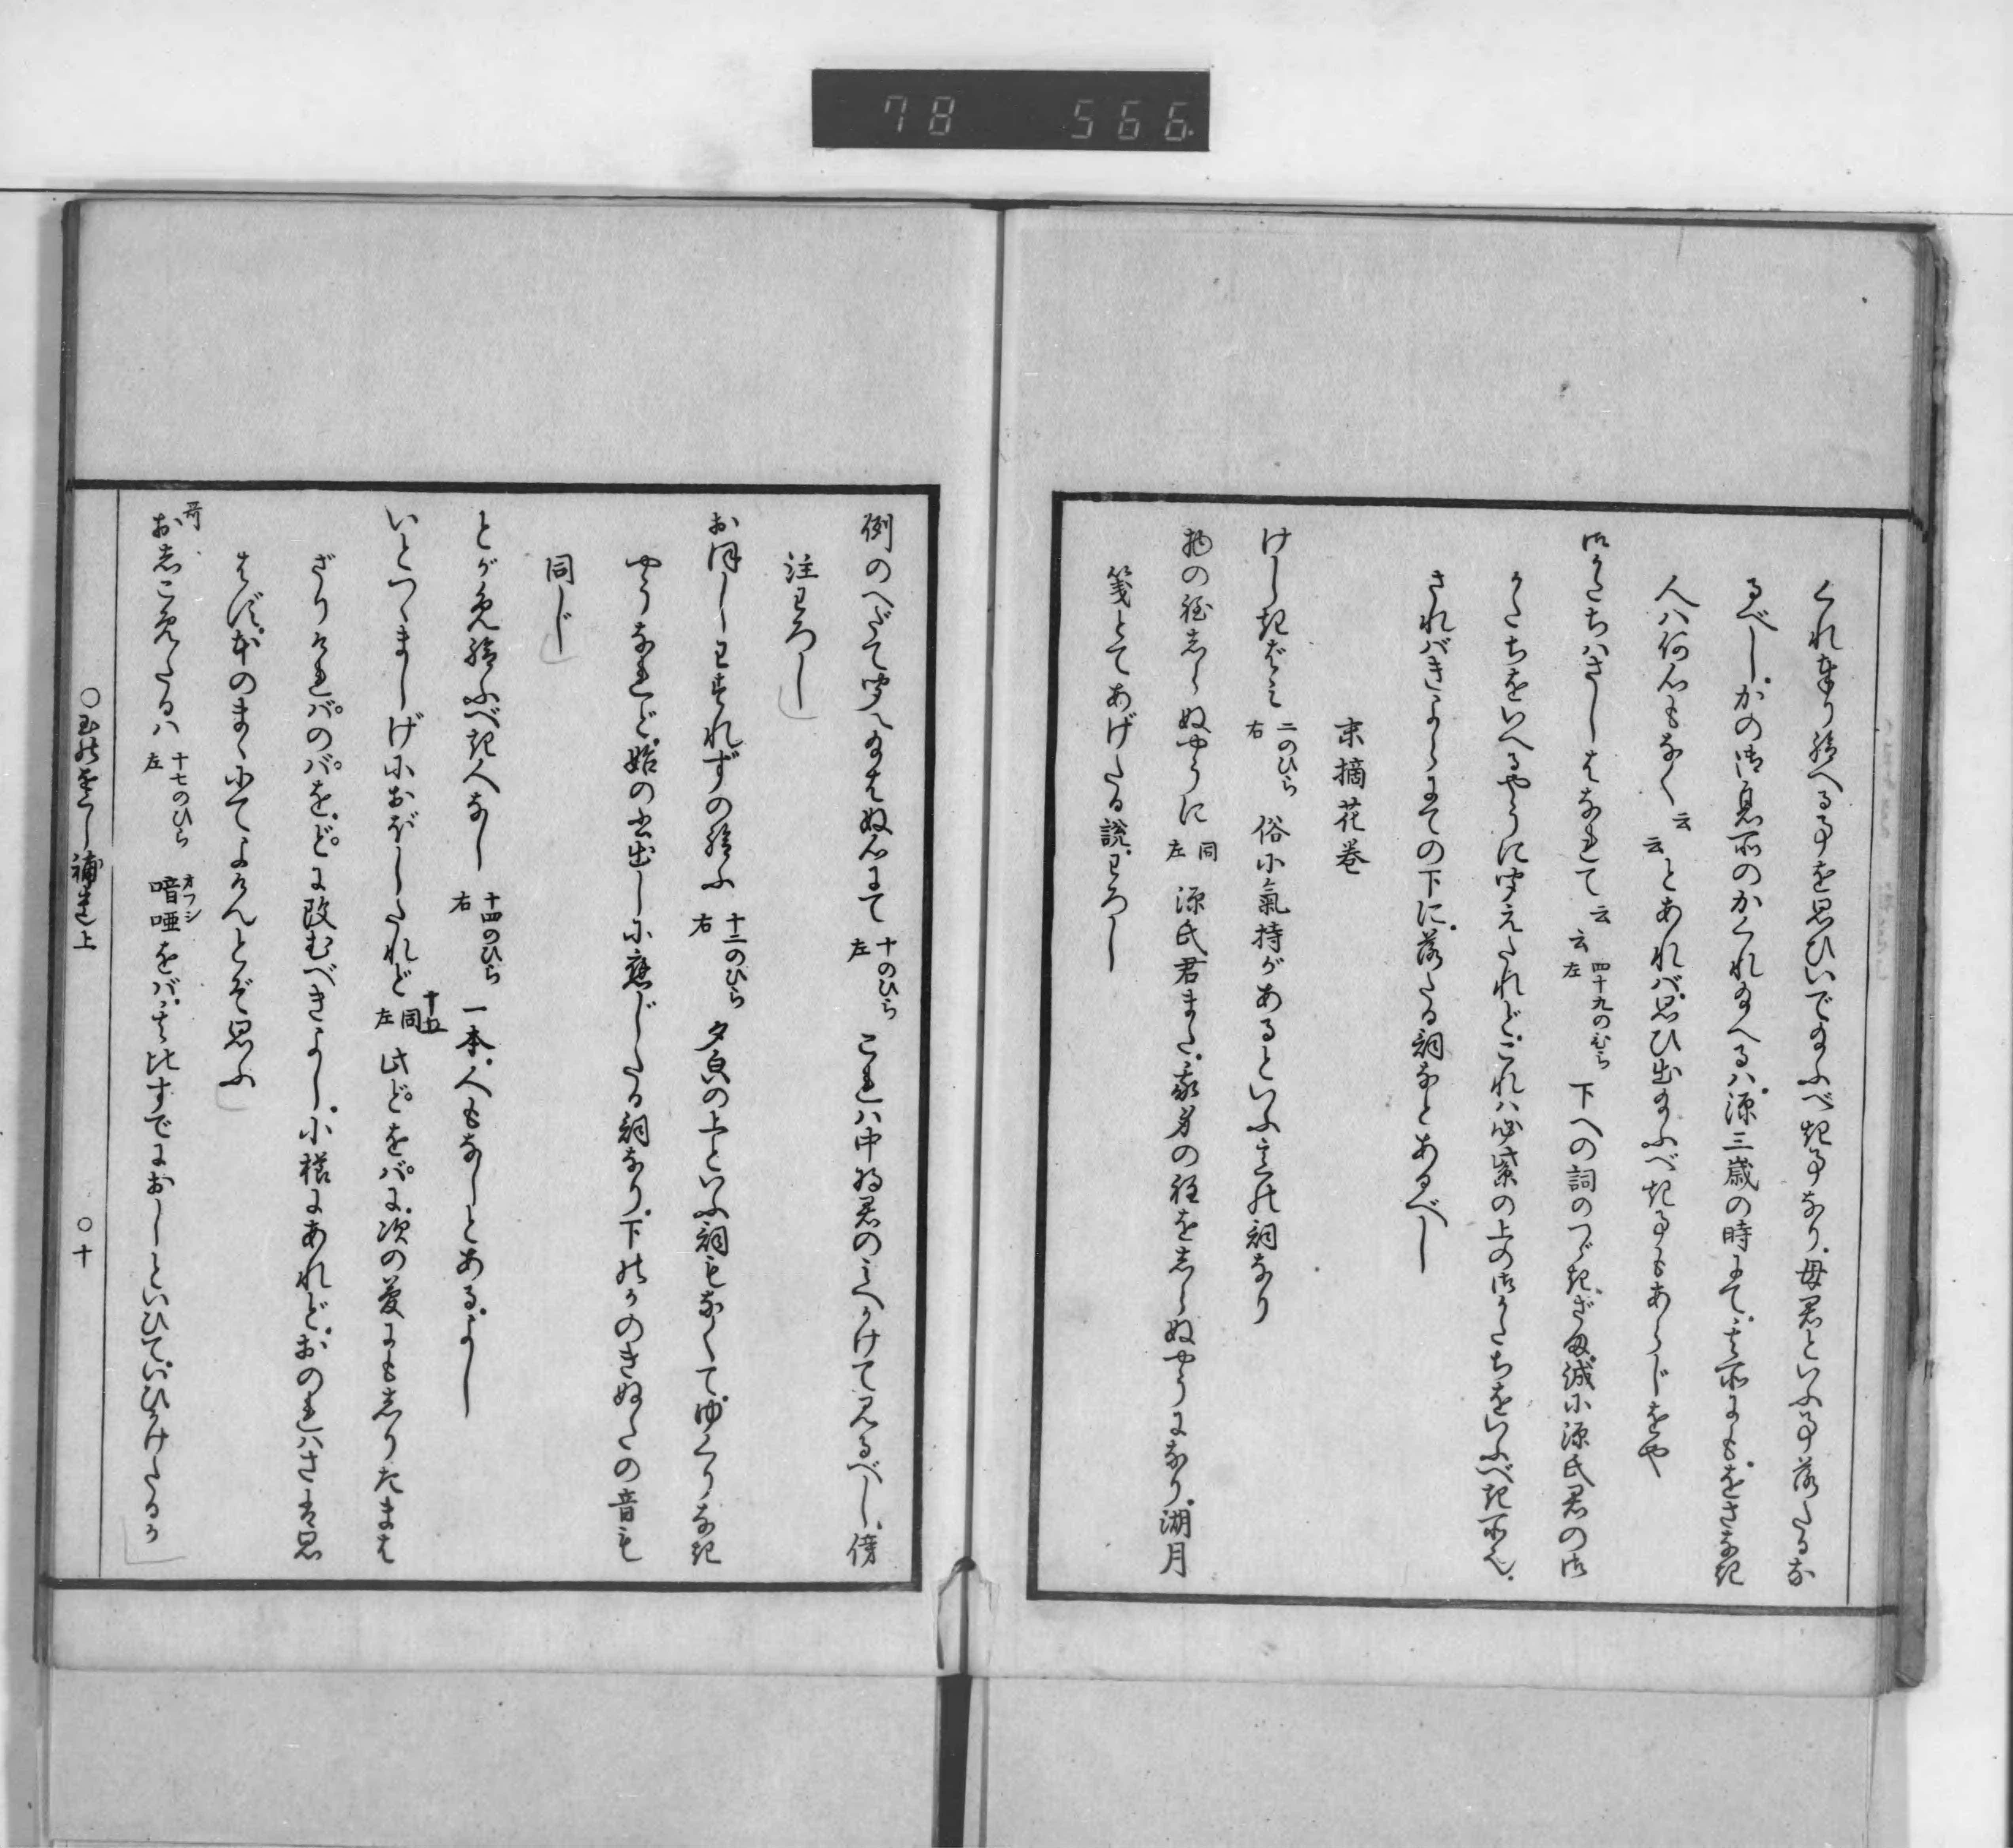 78 566
くれ奉り給へる事を思ひいで給ふべき事なり、母君といふ事落たるな
るべし、かの御息所のかくれ給へるハ、源三歳の時にて、其所にも、をさなき
人ハ何心もなく云云とあれバ、思ひ出給ふべき事もあらじをや
御かたちハさしはなれて云云 四十九のひら左 下への詞のつゞき、ざま、誠に源氏君の御
かたちをいへるやうに聞えたれど、これハ必紫の上の御かたちをいふべき所也、
されバきよらにての下に、落たる詞などあるべし
末摘花巻
けしきばミ 二のひら右 俗に氣持があるといふ意の詞なり
物の程しらぬやうに 同左 源氏君また、我身の程をしらぬやうになり、湖月
箋とてあげたる説、わろし
例のへだて聞え給はぬ心にて 十のひら左 これハ中将君のミへかけて見るべし、傍
注わろし
おぼしわすれずの給ふ 十二のひら右 夕皃の上といふ詞もなくて、ゆくりなき
やうなれど、始の出出しに應じたる詞なり、下の、かのきぬたの音も
同じ
とがめ給ふべき人なし 十四のひら右 一本、人もなしとある、よし
いとつゝましげにおぼしたれど 十五 同左 此ど。をバ。に、次の愛にもしりたまは
ざりけれバ。のバ。を、ど。に改むべきよし、小櫛にあれど、おのれハさは思
はず、本のまゝにてよけんとぞ思ふ
哥 おしこめたるハ 十七のひら左 喑啞オフシをバ、其比すでにおしといひて、いひかけたるか
〇玉のをぐし補遺上 〇十